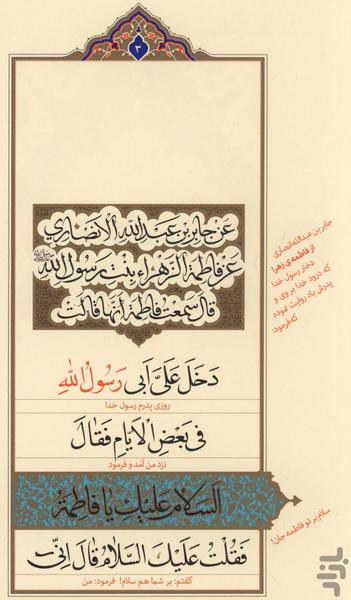 ۳
عَنْ جابِرِ بْنِ عَبْدِ اللهِ الْاَنْصارِي
عَنْ فاطِمَةَ الزَّهْراءِ بِنْتِ رَسُولِ اللهِ ﷺ
قالَ سَمِعْتُ فاطِمَةَ اَنَّها قالَتْ
جابر بن عبدالله انصاری
از فاطمه‌ی زهرا
دختر رسول خدا
که درود خدا بر وی و
پدرش باد روایت نموده
که فرمود:
دَخَلَ عَلَیَّ اَبی رَسُولُ اللهِ
روزی پدرم رسول خدا
فی بَعْضِ الْاَیّامِ فَقالَ
نزد من آمد و فرمود
اَلسَّلامُ عَلَیْكِ یا فاطِمَةُ
سلام بر تو فاطمه جان!
فَقُلْتُ عَلَیْكَ السَّلامُ قالَ اِنّی
گفتم: بر شما هم سلام! فرمود: من
بازار